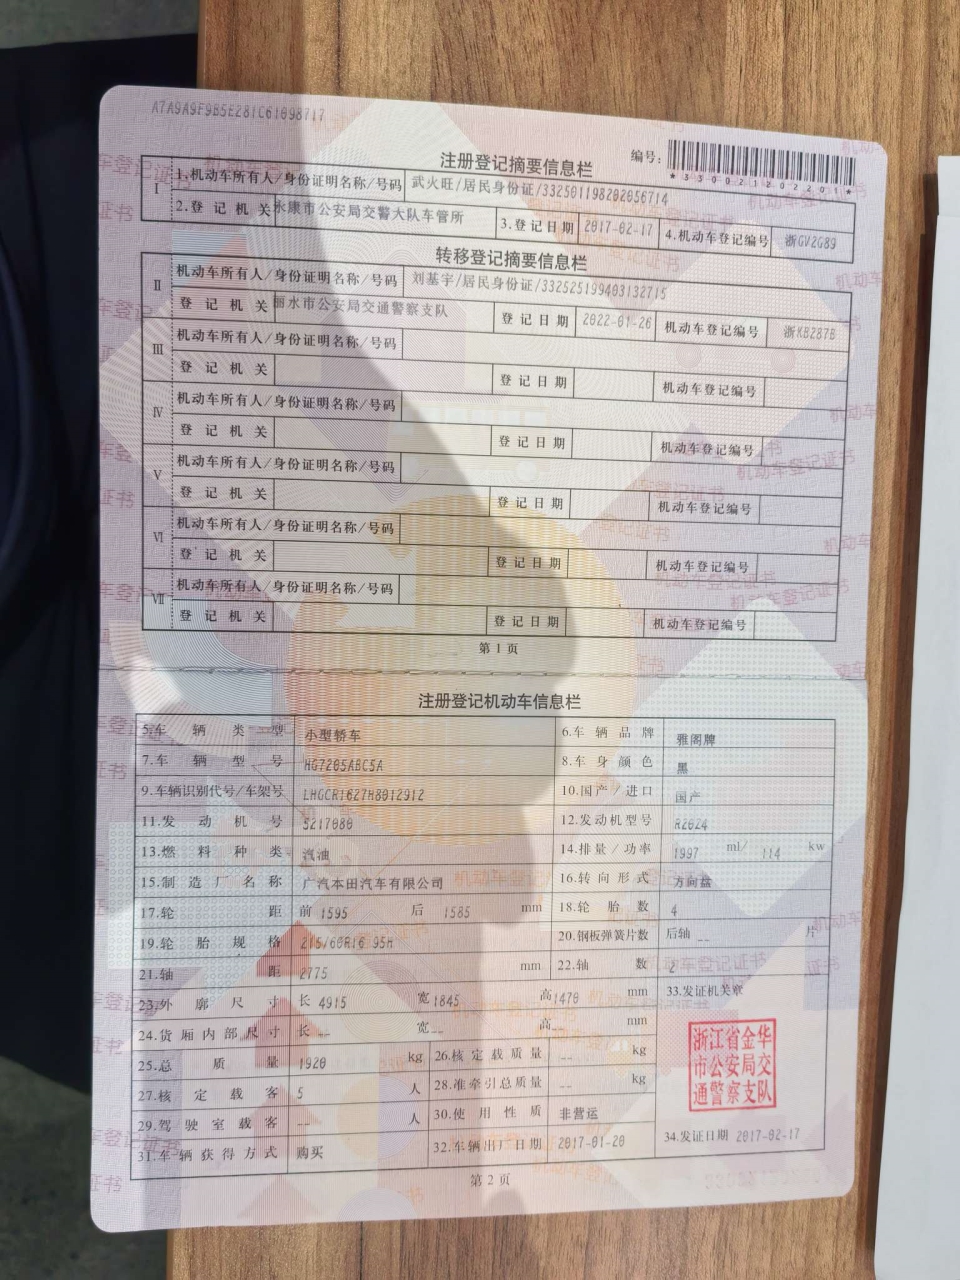 A7A9A9F9B5E281C61098717
注册登记摘要信息栏
编号:
*330021202201*
I
1.机动车所有人/身份证明名称/号码 武火旺/居民身份证/332501198202056714
2.登记机关 永康市公安局交警大队车管所 3.登记日期 2017-02-17 4.机动车登记编号 浙GV2G89
转移登记摘要信息栏
II
机动车所有人/身份证明名称/号码 刘基宇/居民身份证/332525199403132715
登记机关 丽水市公安局交通警察支队 登记日期 2022-01-26 机动车登记编号 浙KB287B
III
机动车所有人/身份证明名称/号码
登记机关 登记日期 机动车登记编号
IV
机动车所有人/身份证明名称/号码
登记机关 登记日期 机动车登记编号
V
机动车所有人/身份证明名称/号码
登记机关 登记日期 机动车登记编号
VI
机动车所有人/身份证明名称/号码
登记机关 登记日期 机动车登记编号
VII
机动车所有人/身份证明名称/号码
登记机关 登记日期 机动车登记编号
第1页
注册登记机动车信息栏
5.车辆类型 小型轿车 6.车辆品牌 雅阁牌
7.车辆型号 HG7205ABC5A 8.车身颜色 黑
9.车辆识别代号/车架号 LHGCR1627H8012912 10.国产/进口 国产
11.发动机号 5217080 12.发动机型号 R20Z4
13.燃料种类 汽油 14.排量/功率 1997 ml/ 114 kw
15.制造厂名称 广汽本田汽车有限公司 16.转向形式 方向盘
17.轮距 前 1595 后 1585 mm 18.轮胎数 4
19.轮胎规格 215/60R16 95H 20.钢板弹簧片数 后轴 -- 片
21.轴距 2775 mm 22.轴数 2
23.外廓尺寸 长 4915 宽 1845 高 1470 mm 33.发证机关章
24.货厢内部尺寸 长 -- 宽 -- 高 -- mm
浙江省金华
市公安局交
通警察支队
25.总质量 1920 kg 26.核定载质量 -- kg
27.核定载客 5 人 28.准牵引总质量 -- kg
29.驾驶室载客 -- 人 30.使用性质 非营运
31.车辆获得方式 购买 32.车辆出厂日期 2017-01-20 34.发证日期 2017-02-17
第2页